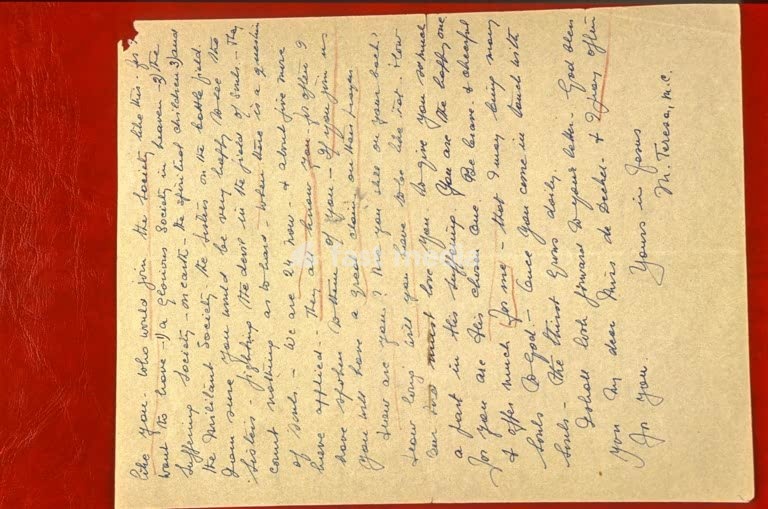 like you - who would join the Society like this - for I
want to have - 1) a Glorious Society in heaven - 2) the
Suffering Society - on earth - the spiritual children 3) and
the Militant Society - the Sisters on the battle field.
I am sure you would be very happy to see the
Sisters - fighting the devil in the field of souls - they
count nothing as to hard - when there is a question
of souls - We are 24 now - & about five more
have applied - They all know you - for often I
have spoken to them of you - If you join us
you will have a great claim on their prayer
How are you? Are you still on your back?
How long will you have to be like that? How
Our must love you to give you so much
a part in His suffering. You are the happy one
for you are His chosen one. Be brave & cheerful
& offer much for me - that I may bring many
souls to God - Once you come in touch with
souls - the thirst grows daily.
I shall look forward to your letter. God bless
you my dear Miss de Decker - & I pray often
for you.
Yours in Jesus
M. Teresa, M.C.